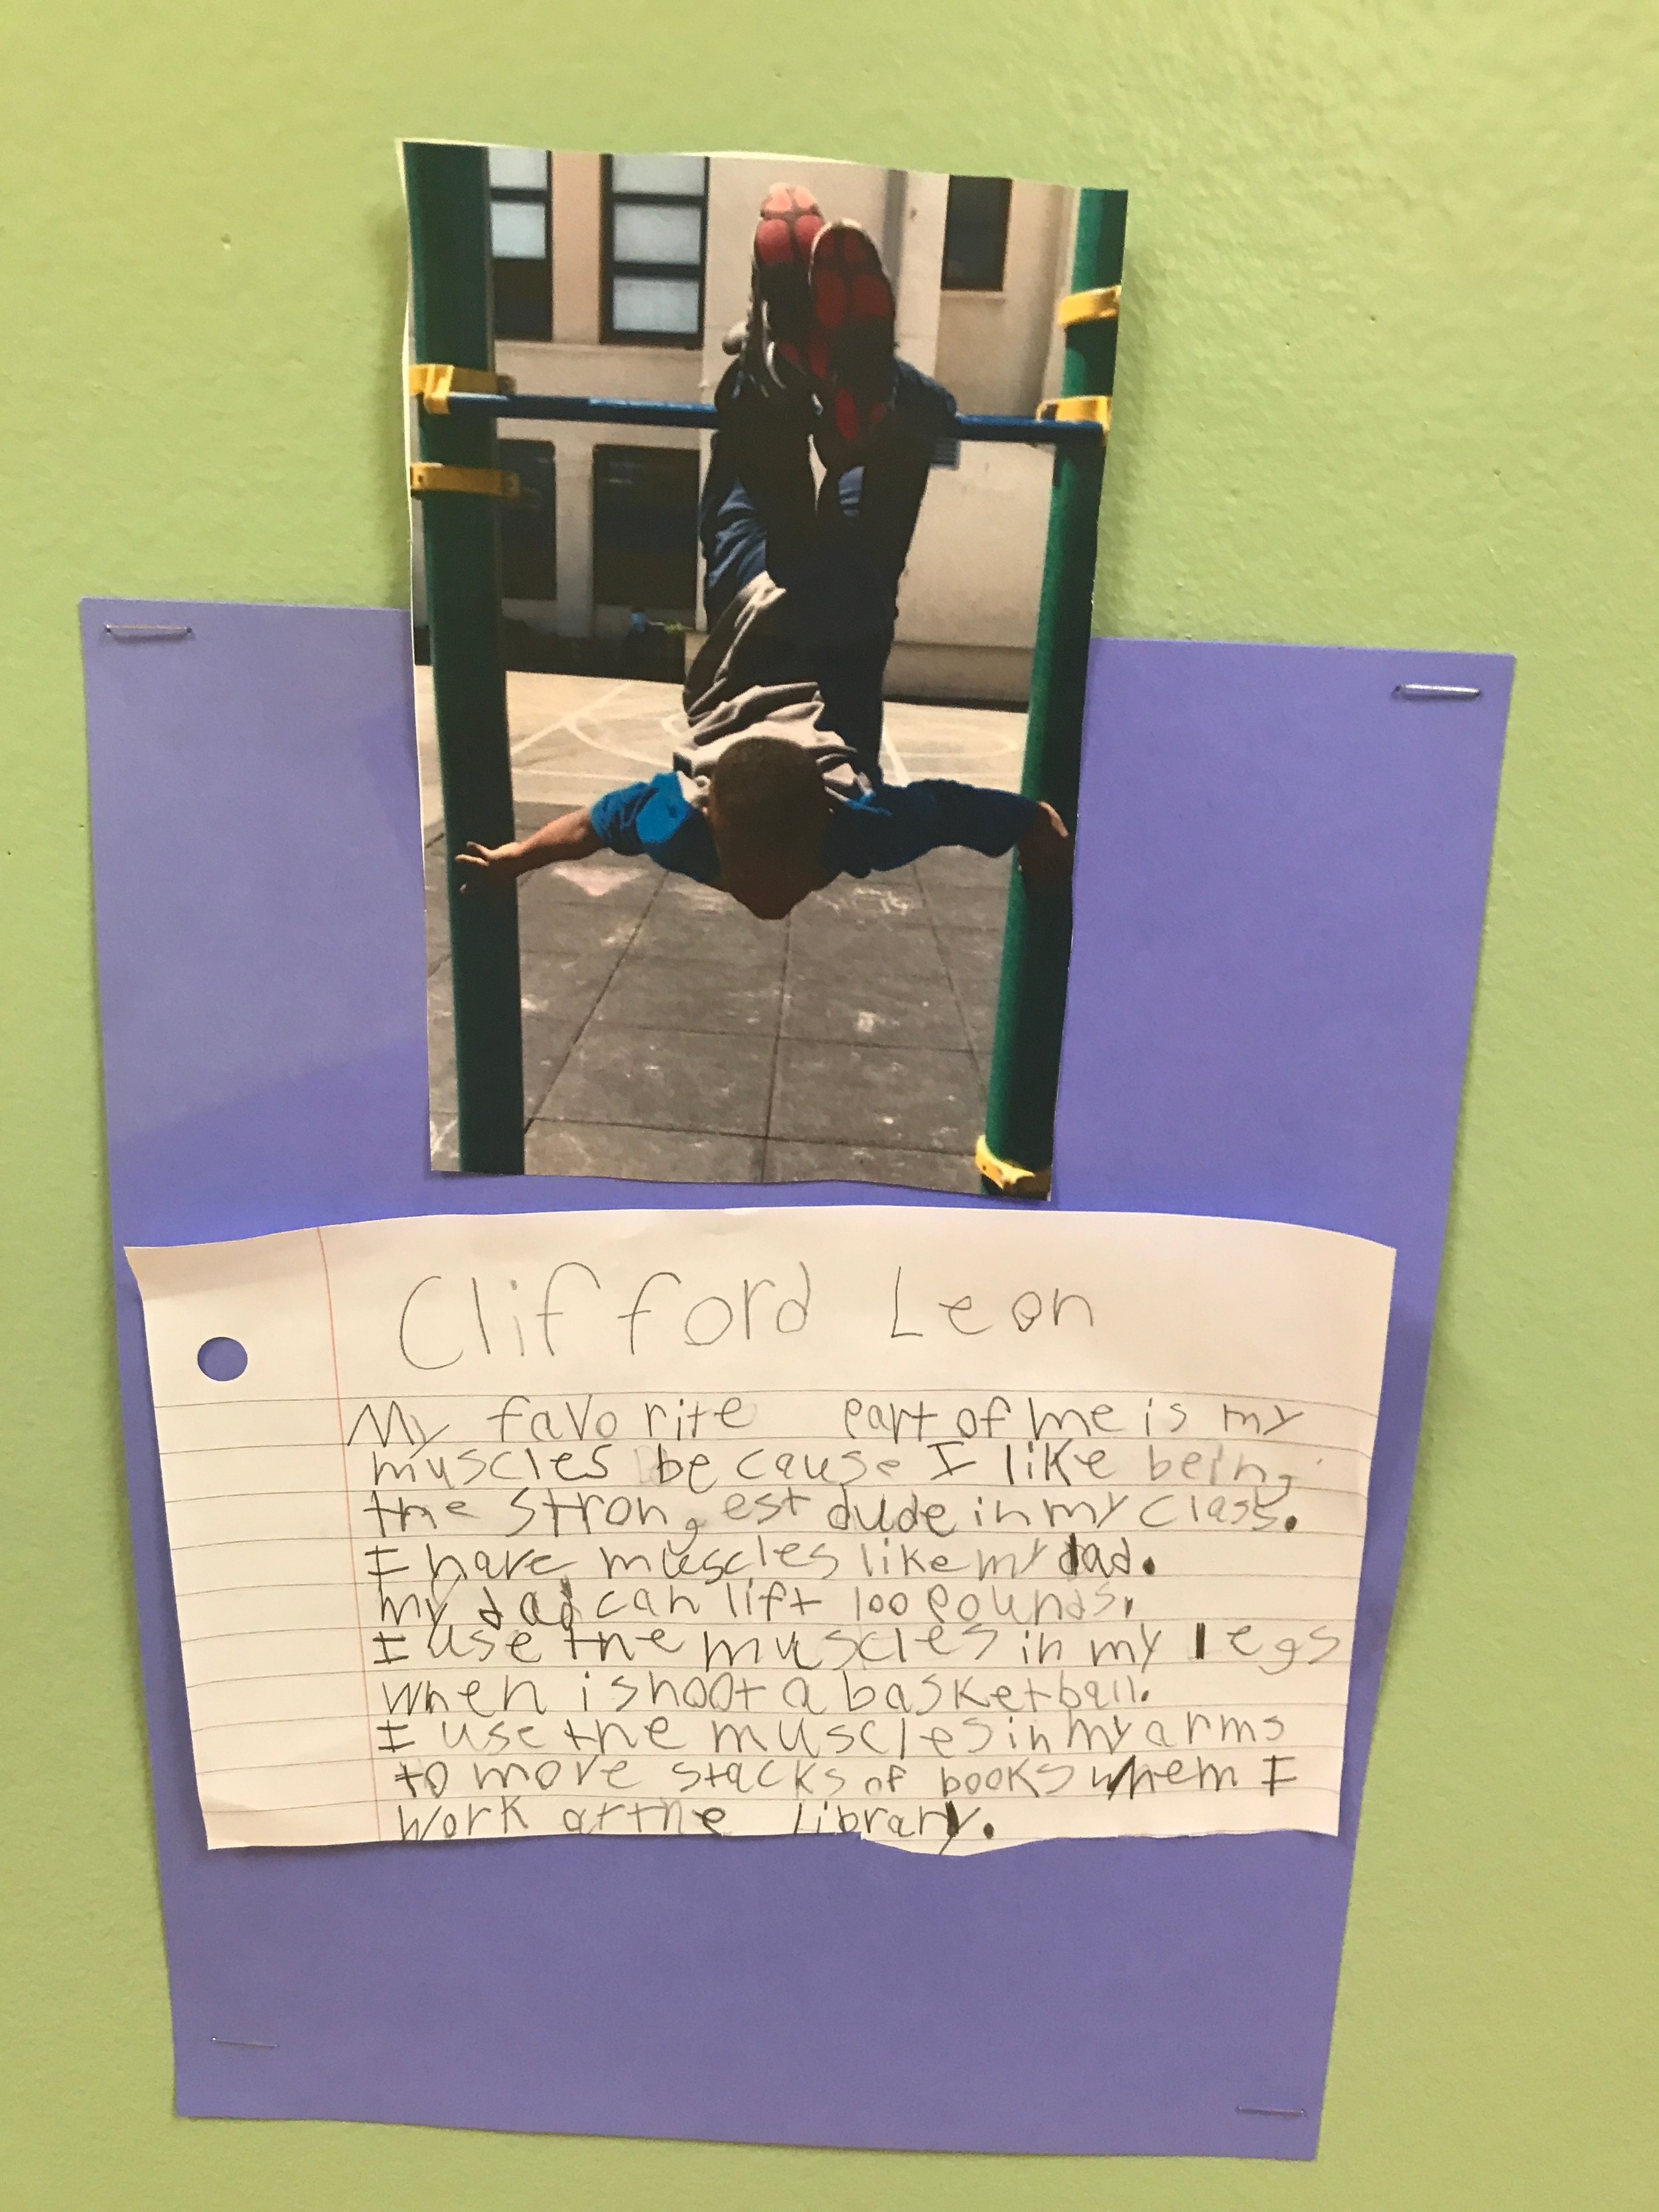 Clifford Leon
My favorite part of me is my
muscles because I like being
the strongest dude in my class.
I have muscles like my dad.
my dad can lift 100 pounds.
I use the muscles in my legs
when i shoot a basketball.
I use the muscles in my arms
to move stacks of books when I
work at the library.